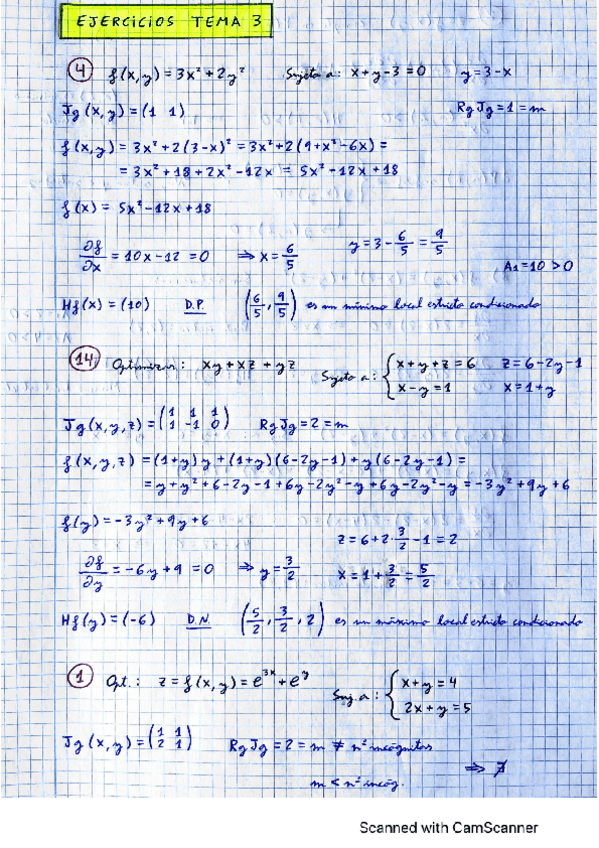 EJERCICIOS TEMA 3
4 f(x,y) = 3x² + 2y² Sujeto a: x+y-3=0 y=3-x
Jg(x,y) = (1 1) Rg Jg = 1 = m
f(x,y) = 3x² + 2(3-x)² = 3x² + 2(9+x²-6x) =
= 3x² + 18 + 2x² - 12x = 5x² - 12x + 18
f(x) = 5x² - 12x + 18
∂f/∂x = 10x - 12 = 0 ⇒ x = 6/5 y = 3 - 6/5 = 9/5
A₁ = 10 > 0
Hf(x) = (10) D.P. (6/5, 9/5) es un mínimo local estricto condicionado
14 Optimizar: xy + xz + yz Sujeto a: { x+y+z=6 z=6-2y-1
x-y=1 x=1+y
Jg(x,y,z) = (1 1 1
1 -1 0) Rg Jg = 2 = m
f(x,y,z) = (1+y)y + (1+y)(6-2y-1) + y(6-2y-1) =
= y + y² + 6 - 2y - 1 + 6y - 2y² - y + 6y - 2y² - y = -3y² + 9y + 6
f(y) = -3y² + 9y + 6
z = 6 + 2·3/2 - 1 = 2
∂f/∂y = -6y + 9 = 0 ⇒ y = 3/2 x = 1 + 3/2 = 5/2
Hf(y) = (-6) D.N. (5/2, 3/2, 2) es un máximo local estricto condicionado
1 Opt.: z = f(x,y) = e³ˣ + eʸ Suj. a: { x+y=4
2x+y=5
Jg(x,y) = (1 1
2 1) Rg Jg = 2 = m ≠ nº incógnitas
⇒ ∄
m < nº incóg.
Scanned with CamScanner